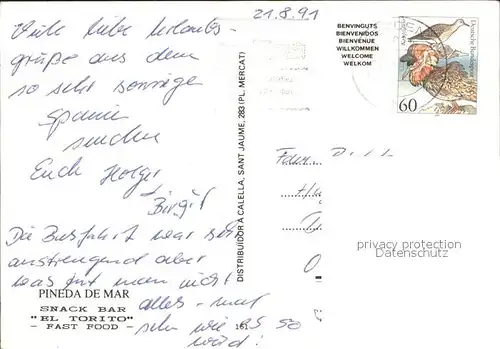 21.8.91
Viele liebe Urlaubs-
grüße aus dem
so sehr sonnige
Spanien
senden
Euch Holger
Birgit
Die Busfahrt war sehr
anstrengend aber
was tut man nicht
alles - mal
sehn wie es so
wird!
PINEDA DE MAR
SNACK BAR
"EL TORITO"
- FAST FOOD -
161
DISTRIBUIDOR A CALELLA, SANT JAUME, 283 (PL. MERCAT)
BENVINGUTS
BIENVENIDOS
BIENVENUE
WILLKOMMEN
WELCOME
WELKOM
Deutsche Bundespost
60
Fam.
privacy protection
Datenschutz